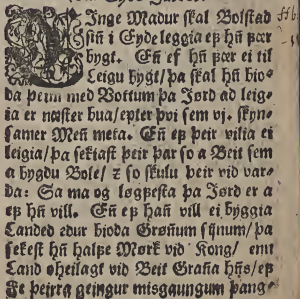 Inge Madur skal Bolstad
sin̄ i Eyde leggia eß hn̄ þær
bygt. En̄ ef hn̄ þær ei til
Leigu bygt/ þa skal hn̄ bio-
da þeim med Vottum þa Jørd ad leig-
ia er næster bua/ epter þvi sem vj. skyn-
samer Men̄ meta. En̄ eß þeir vilia ei
leigia/ þa sekiast þeir þar so a Beit sem
a bygdu Bole/ ⁊ so skulu þeir vid var-
da: Sa ma og løgßesta þa Jørd er a
eß hn̄ vill. En̄ eß han̄ vill ei byggia
Landed edur bioda Grøn̄um sijnum/ þa
sekest hn̄ halße Mørk vid Kong/ enn
Land oheilagt vid Beit Gran̄a hn̄s/ eß
Fe þeirra geingur misgaungum þang-